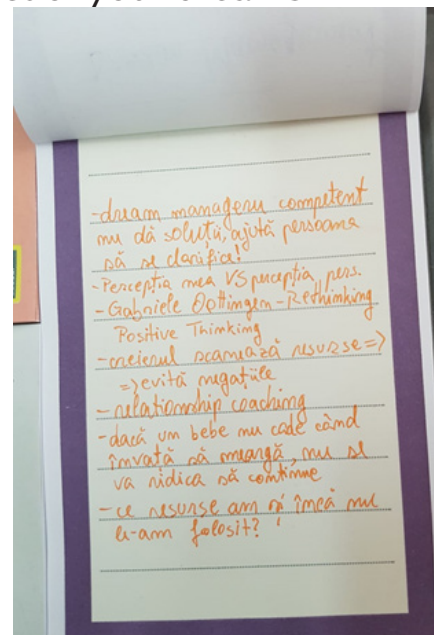 -dream managerul competent
nu dă soluții, ajută persoana
să se clarifice!
-Percepția mea VS percepția pers.
-Gabriele Oettingen-Rethinking
Positive Thinking
-creierul scanează resurse=>
=>evită negațiile
-relationship coaching
-dacă un bebe nu cade când
învață să meargă, nu se
va ridica să continue
-ce resurse am și încă nu
le-am folosit?